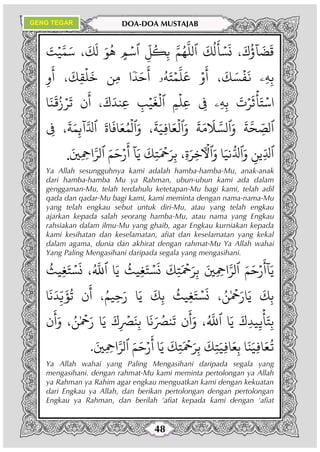 GENG TEGAR
DOA-DOA MUSTAJAB
قَضَآؤُكَ، نَسْأَلُكَ ٱللَّهُمَّ بِكُلِّ ٱسْمٍ هُوَ لَكَ، سَمَّيْتَ
بِهِۦ نَفْسَكَ، أَوْ عَلَّمْتَهُۥ أَحَدًا مِن خَلْقِكَ، أَوِ
ٱسْتَأْثَرْتَ بِهِۦ فِى عِلْمِ ٱلْغَيْبِ عِندَكَ، أَن تَرْزُقَنَا
ٱلصِّحَّةَ وَٱلسَّلَامَةَ وَٱلْعَافِيَةَ، وَٱلْمُعَافَاةَ ٱلدَّآئِمَةَ، فِى
ٱلدِّينِ وَٱلدُّنْيَا وَٱلْأٓخِرَةِ، بِرَحْمَتِكَ يَآ أَرْحَمَ ٱلرَّاحِمِينَ.
Ya Allah sesungguhnya kami adalah hamba-hamba-Mu, anak-anak
dari hamba-hamba Mu ya Rahman, ubun-ubun kami ada dalam
genggaman-Mu, telah terdahulu ketetapan-Mu bagi kami, kami adil
qada dan qadar-Mu bagi kami, kami meminta dengan nama-nama-Mu
yang telah engkau sebut untuk diri-Mu, atau yang telah engkau
ajarkan kepada salah seorang hamba-Mu, atau nama yang Engkau
rahsiakan dalam ilmu-Mu yang ghaib, agar Engkau kurniakan kepada
kami kesihatan dan keselamatan, afiat dan keselamatan yang kekal
dalam agama, dunia dan akhirat dengan rahmat-Mu Ya Allah wahai
Yang Paling Mengasihani daripada segala yang mengasihani.
يَآأَرْحَمَ ٱلرَّاحِمِينَ بِرَحْمَتِكَ نَسْتَغِيثُ يَا ٱللهُ، نَسْتَغِيثُ
بِكَ يَارَحْمٰنُ، نَسْتَغِيثُ بِكَ يَا رَحِيمُ، أَن تُؤَيِّدَنَا
بِتَأْيِيدِكَ يَا ٱللهُ، وَأَن تَنْصُرَنَا بِنَصْرِكَ يَا رَحْمٰنُ، وَأَن
تُعَافِيَنَا بِعَافِيَتِكَ بِرَحْمَتِكَ يَا أَرْحَمَ ٱلرَّاحِمِينَ.
Ya Allah wahai yang Paling Mengasihani daripada segala yang
mengasihani. dengan rahmat-Mu kami meminta pertolongan ya Allah
ya Rahman ya Rahim agar engkau menguatkan kami dengan kekuatan
dari Engkau ya Allah, dan berikan pertolongan dengan pertolongan
Engkau ya Rahman, dan berilah 'afiat kepada kami dengan 'afiat
48